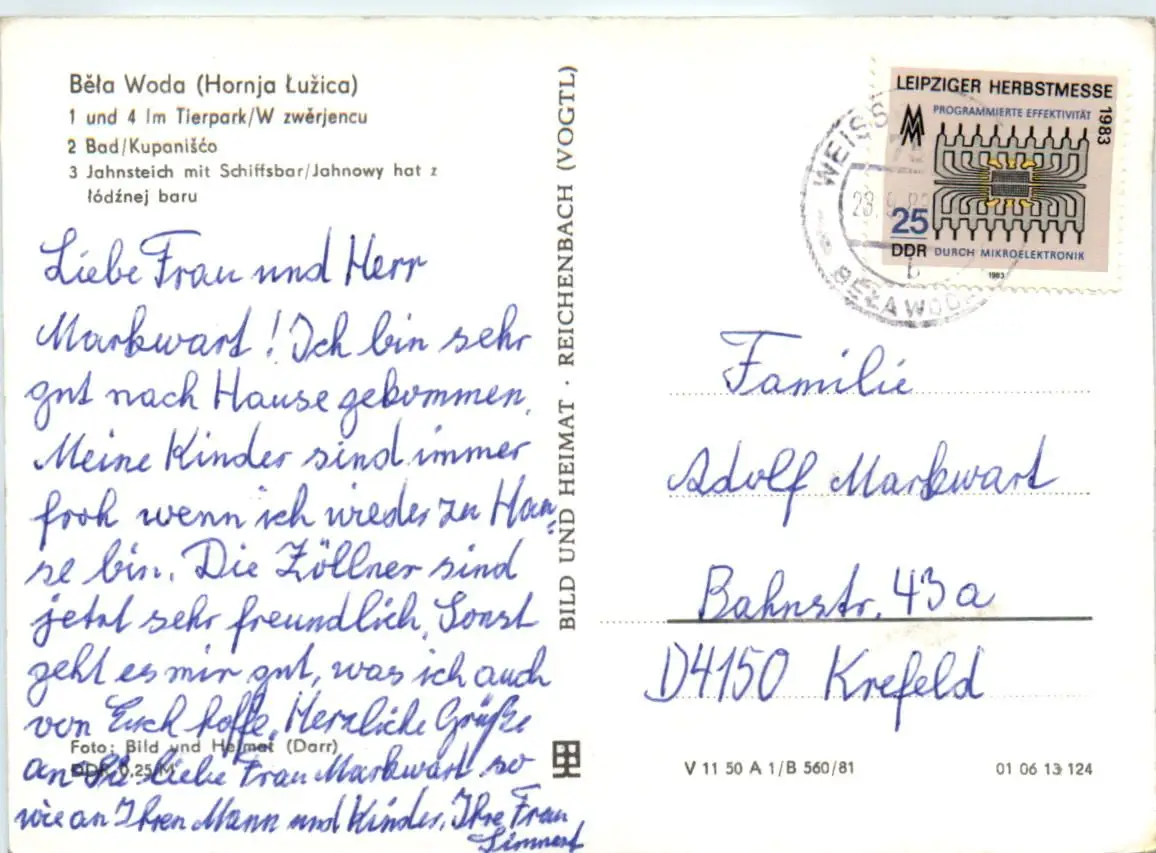 Běła Woda (Hornja Łužica)
1 und 4 Im Tierpark/W zwěrjencu
2 Bad/Kupanišćo
3 Jahnsteich mit Schiffsbar/Jahnowy hat z
łódźnej baru
Liebe Frau und Herr
Markwart! Ich bin sehr
gut nach Hause gekommen,
Meine Kinder sind immer
froh wenn ich wieder zu Hau=
se bin. Die Zöllner sind
jetzt sehr freundlich, Sonst
geht es mir gut, was ich auch
von Euch hoffe. Herzliche Grüße
an Sie liebe Frau Markwart so
wie an Ihren Mann und Kinder, Ihre Frau
Foto: Bild und Heimat (Darr)
DDR 0,25 M
BILD UND HEIMAT · REICHENBACH (VOGTL)
LEIPZIGER HERBSTMESSE
1983
PROGRAMMIERTE EFFEKTIVITÄT
MM
25
DDR
DURCH MIKROELEKTRONIK
1983
WEISS
BEŁA WODA
b
Familie
Adolf Markwart
Bahnstr. 43a
D4150 Krefeld
V 11 50 A 1/B 560/81
01 06 13 124